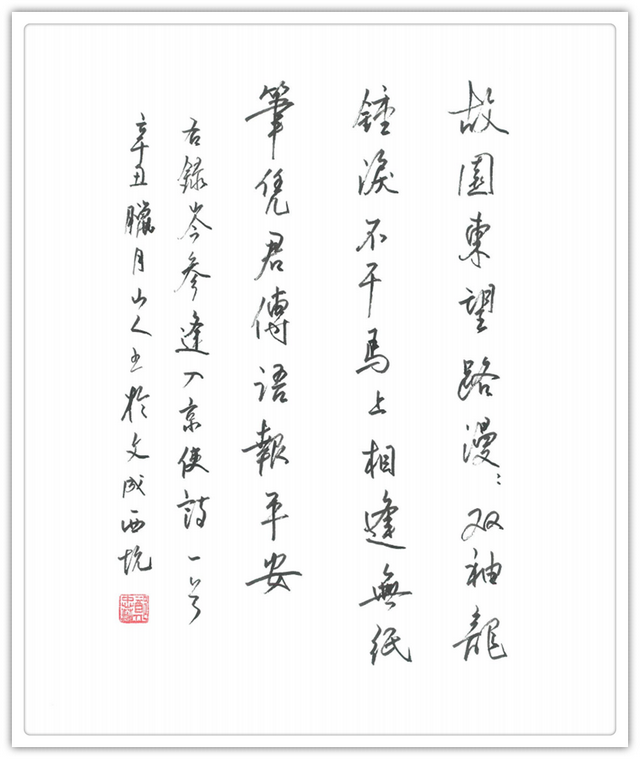 故園東望路漫〻双袖龍
鍾淚不干馬上相逢無紙
筆凭君傳語報平安
右録岑參逢入京使詩一首
辛丑臘月山人书於文成西坑